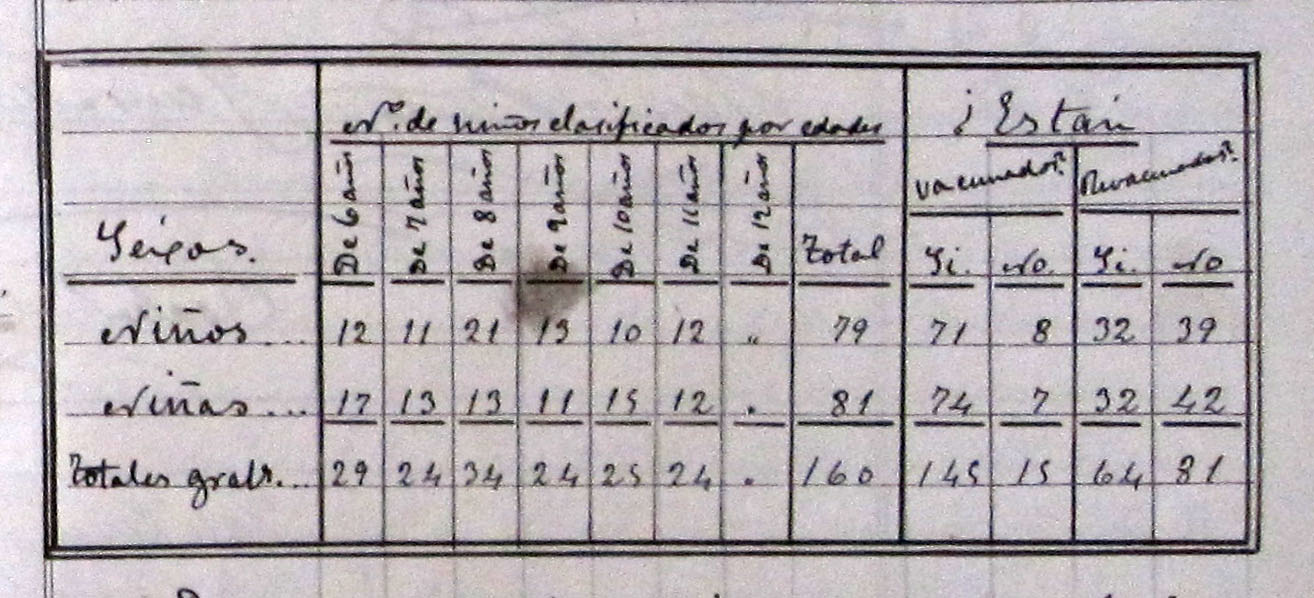 Nº. de niños clasificados por edades ¿Están
vacunados? Revacunados?
Seixos. De 6 años De 7 años De 8 años De 9 años De 10 años De 11 años De 12 años Total Si. No. Si. No
Niños... 12 11 21 13 10 12 " 79 71 8 32 39
Niñas... 17 13 13 11 15 12 . 81 74 7 32 42
Totales grals... 29 24 34 24 25 24 . 160 145 15 64 81